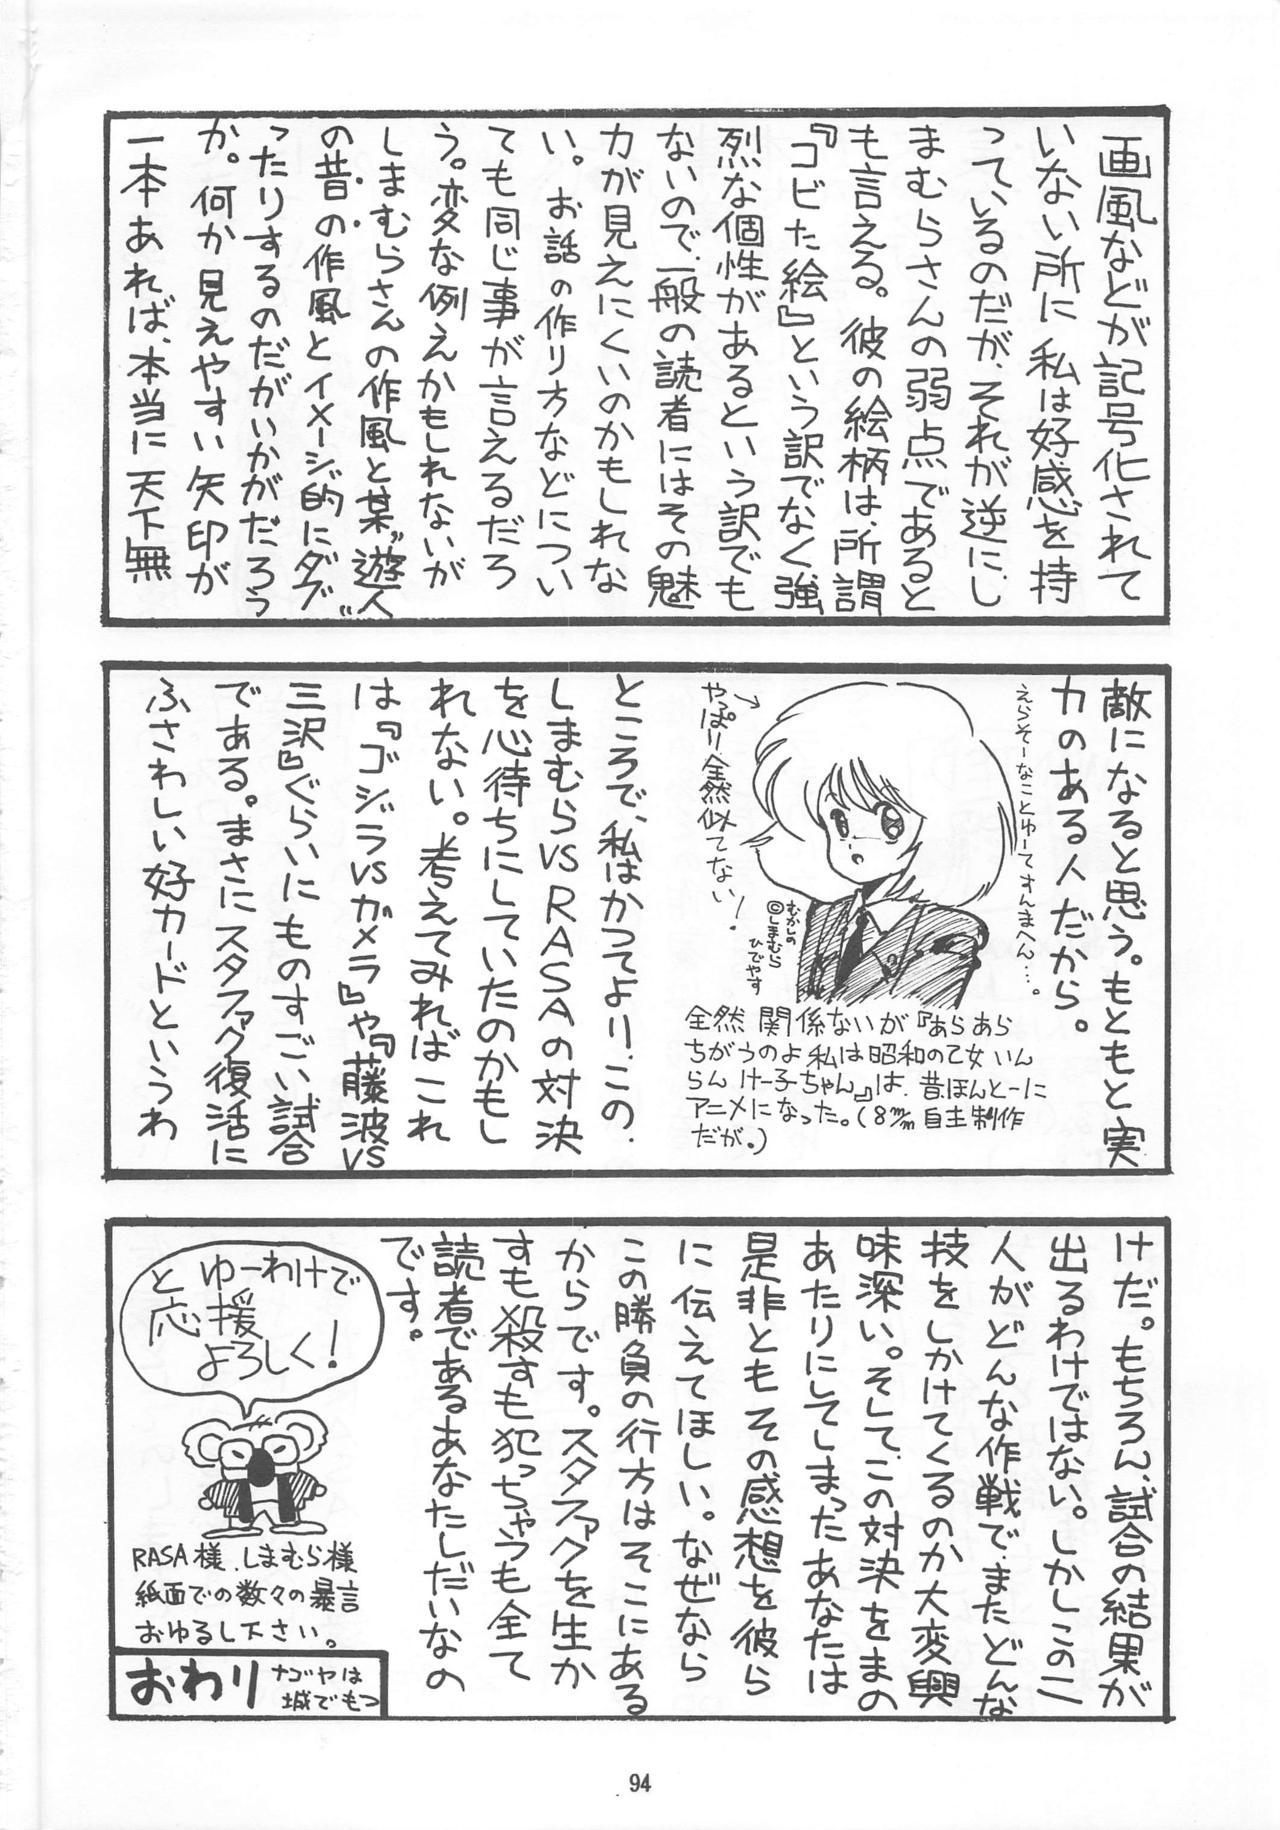 画風などが記号化されて
いない所に私は好感を持
っているのだが、それが逆にし
まむらさんの弱点であると
も言える。彼の絵柄は、所謂
『コビた絵』という訳でなく強
烈な個性があるという訳でも
ないので、一般の読者にはその魅
力が見えにくいのかもしれな
い。お話の作り方などについ
ても同じ事が言えるだろ
う。変な例えかもしれないが
しまむらさんの作風と某〝遊人〟
の昔の作風とイメージ的にダブ
ったりするのだがいかがだろう
か。何か見えやすい矢印が
一本あれば、本当に天下無
敵になると思う。もともと実
力のある人だから。
えらそーなことゆーてすんまへん…。
やっぱり、全然似てない!
むかしの
©しまむら
ひでやす
全然関係ないが『あらあら
ちがうのよ私は昭和の乙女いん
らんけー子ちゃん』は、昔ほんとーに
アニメになった。(8m/m自主制作
だが。)
ところで、私はかつてより、この
しまむらVSRASAの対決
を心待ちにしていたのかもし
れない。考えてみればこれ
は『ゴジラVSガメラ』や『藤波VS
三沢』ぐらいにものすごい試合
である。まさにスタファク復活に
ふさわしい好カードというわ
けだ。もちろん、試合の結果が
出るわけではない。しかしこの二
人がどんな作戦で、またどんな
技をしかけてくるのか大変興
味深い。そして、この対決をまの
あたりにしてしまったあなたは
是非ともその感想を彼ら
に伝えてほしい。なぜなら
この勝負の行方はそこにある
からです。スタファクを生か
すも殺すも犯っちゃうも全て
読者であるあなたしだいなの
です。
ゆーわけで
と応援
よろしく!
RASA様、しまむら様
紙面での数々の暴言
おゆるし下さい。
おわり
ナゴヤは
城でもつ
94